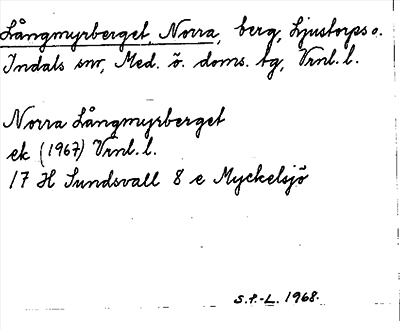 Långmyrberget, Norra, berg, Ljustorps o.
Indals snr, Med. ö. doms. tg, Vrnl. l.
Norra Långmyrberget
ek (1967) Vrnl. l.
17 H Sundsvall 8 e Myckelsjö
S.P.-L. 1968.